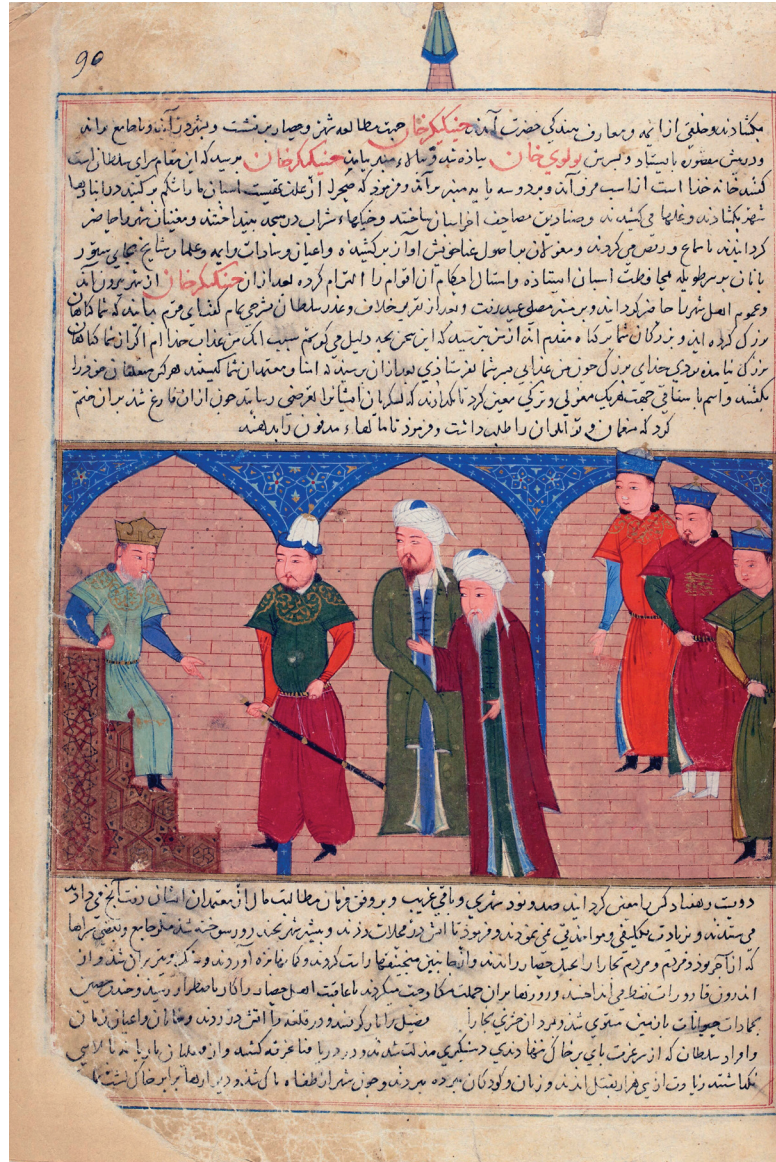 90
بکشادند و خلقی از ایمه و معارف ببندکی حضرت آمدند چنیکیزخان جهت مطالعه شهر و حصار برنشست و بشهر درآمد و تا جامع براند
و در پیش مقصوره بایستاد و پسرش تولوی خان پیاذه شد و بالاء منبر برآمد چنیکیزخان پرسید که این مقام سرای سلطان است
کفتند خانه خذا است از اسب فروآمد و بر دو سه پایه منبر برآمد و فرموذ که صحرا از علف تهیست اسبان ما را شکم پر کنند در انبارها
شهر بکشادند و غلها می‌کشیدند و صنادیق مصاحف آخر اسبان ساختند و خیکهاء شراب در مسجد بینداختند و مغنیان شهر را حاضر
کردانیدند تا سماع و رقص می‌کردند و مغولان بر اصول غنا خویش آواز برکشیده و اعیان و سادات و ایمه و علما و مشایخ بجای ستور
بانان بر سر طویله بمحافظت اسبان ایستاده و امتثال احکام آن اقوام را التزام کرده بعد از آن چنیکیزخان از شهر بیرون آمد
و عموم اهل شهر را حاضر کردانید و بر منبر مصلی عید رفت و بعد از تقریر خلاف و غدر سلطان بشرحی تمام کفت ای قوم بدانید که شما کناهاء
بزرک کرده‌اید و بزرکان شما بر کناه مقدم‌اند از من پرسید که این سخن بچه دلیل می‌کویم سبب آنک من عذاب خذا ام اکر از شما کناهاء
بزرک نیامده بودی خدای بزرک چون من عذابی بسر شما نفرستاذی بعد از آن پرسید که امنا و معتمدان شما کیستند هرکس متعلقان خود را
بکفتند و اسم باسقاقی جهت هریک مغولی و ترکی معین کرد تا نکذارند که لشکریان ایشانرا تعرضی رسانند چون از آن فارغ شد بر آن ختم
کرد که منعمان و توانکران را طلب داشت و فرموذ تا مالهاء مدفون را بدهند
دویست و هفتاد کس را معین کردانید صد و نود شهری و باقی غریب و بر وفق فرمان مطالبت مال از معتمدان ایشان رفت آنچ می‌دادند
می‌ستدند و بزیادت تکلیفی و مواخذتی نمی‌نمودند و فرموذ تا آتش در محلات زدند و بیشتر شهر بچند روز سوخته شد مکر جامع و بعضی سراها
که از آجر بود و مردم بخارا را بجنک حصار راندند و از جانبین منجنیقها راست کردند و کمانها خم آوردند و سنک و تیر پران شد و از
اندرون قارورات نفط می‌انداختند و روزها برین جملت مکاوحت میکردند تا عاقبت اهل حصار را کار باضطرار رسید و خندق
بجمادات و حیوانات با زمین مستوی شد و بمردان حشری بخارا فصیل را باز کرفتند و در قلعه را آتش در زدند و خانان و اعیان زمان
و افراد سلطان که از سر عزت پای بر خاک ننهادندی دستکیر مذلت شدند و در دریا فنا غرقه کشتند و از قنقلیان نرینه بالا
نکذاشتند زیادت از سی هزار بقتل آمدند و زنان و کودکان ببرده ببردند و چون شهر از طغاة پاک شد و دیوارها برابر خاک کشت تمامی